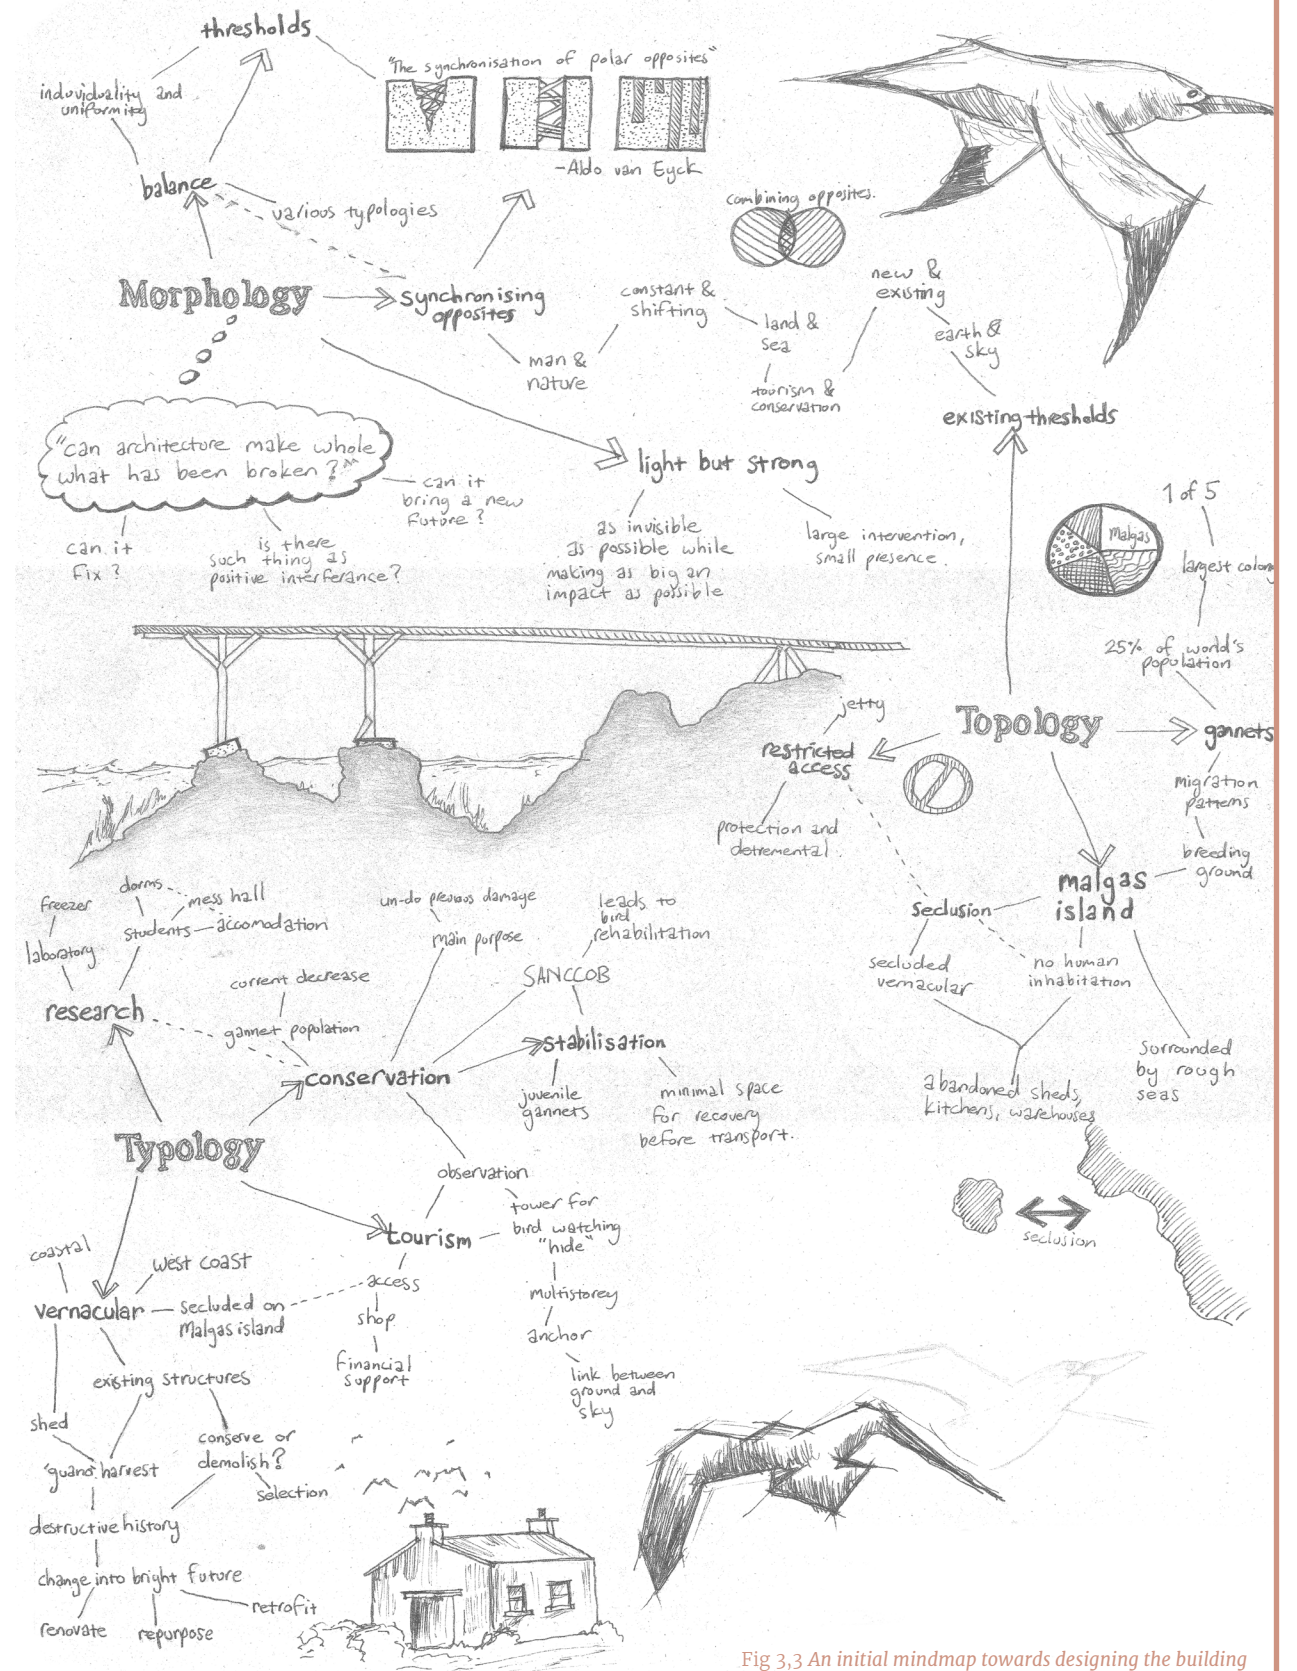 thresholds
individuality and
uniformity
balance
various typologies
"The synchronisation of polar opposites"
-Aldo van Eyck
combining opposites.
Morphology
synchronising
opposites
man &
nature
constant &
shifting
land &
sea
tourism &
conservation
new &
existing
earth &
sky
existing thresholds
"can architecture make whole
what has been broken?"
can it
fix?
is there
such thing as
positive interferance?
can it
bring a new
future?
light but strong
as invisible
as possible while
making as big an
impact as possible
large intervention,
small presence.
1 of 5
Malgas
largest colony
25% of world's
population
Topology
gannets
migration
patterns
breeding
ground
jetty
restricted
access
protection and
detremental.
malgas
island
seclusion
secluded
vernacular
no human
inhabitation
abandoned sheds,
kitchens, warehouses
surrounded
by rough
seas
seclusion
freezer
laboratory
dorms
mess hall
students
accomodation
research
current decrease
gannet population
un-do previous damage
main purpose
leads to
bird
rehabilitation
SANCCOB
stabilisation
conservation
juvenile
gannets
minimal space
for recovery
before transport.
Typology
observation
tourism
tower for
bird watching
"hide"
multistorey
anchor
link between
ground and
sky
access
shop
financial
support
coastal
west coast
vernacular
secluded on
Malgas island
existing structures
shed
conserve or
demolish?
selection
'guano' harvest
destructive history
change into bright future
renovate
repurpose
retrofit
Fig 3,3 An initial mindmap towards designing the building